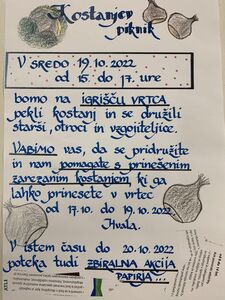 Kostanjev
piknik
V SREDO 19.10.2022
od 15. do 17. ure
bomo na IGRIŠČU VRTCA
pekli kostanj in se družili
starši, otroci in vzgojiteljice.
VABIMO vas, da se pridružite
in nam pomagate s prinešenim
zarezanim kostanjem, ki ga
lahko prinesete v vrtec
od 17.10. do 19.10.2022
Hvala.
V istem času do 20.10.2022
poteka tudi ZBIRALNA AKCIJA
PAPIRJA...